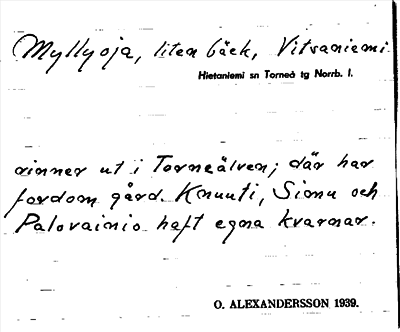 Myllyoja, liten bäck, Vitsaniemi
Hietaniemi sn Torneå tg Norrb. l.
rinner ut i Torneälven; där har
fordom gård. Knuuti, Simu och
Palovainio haft egna kvarnar.
O. ALEXANDERSSON 1939.